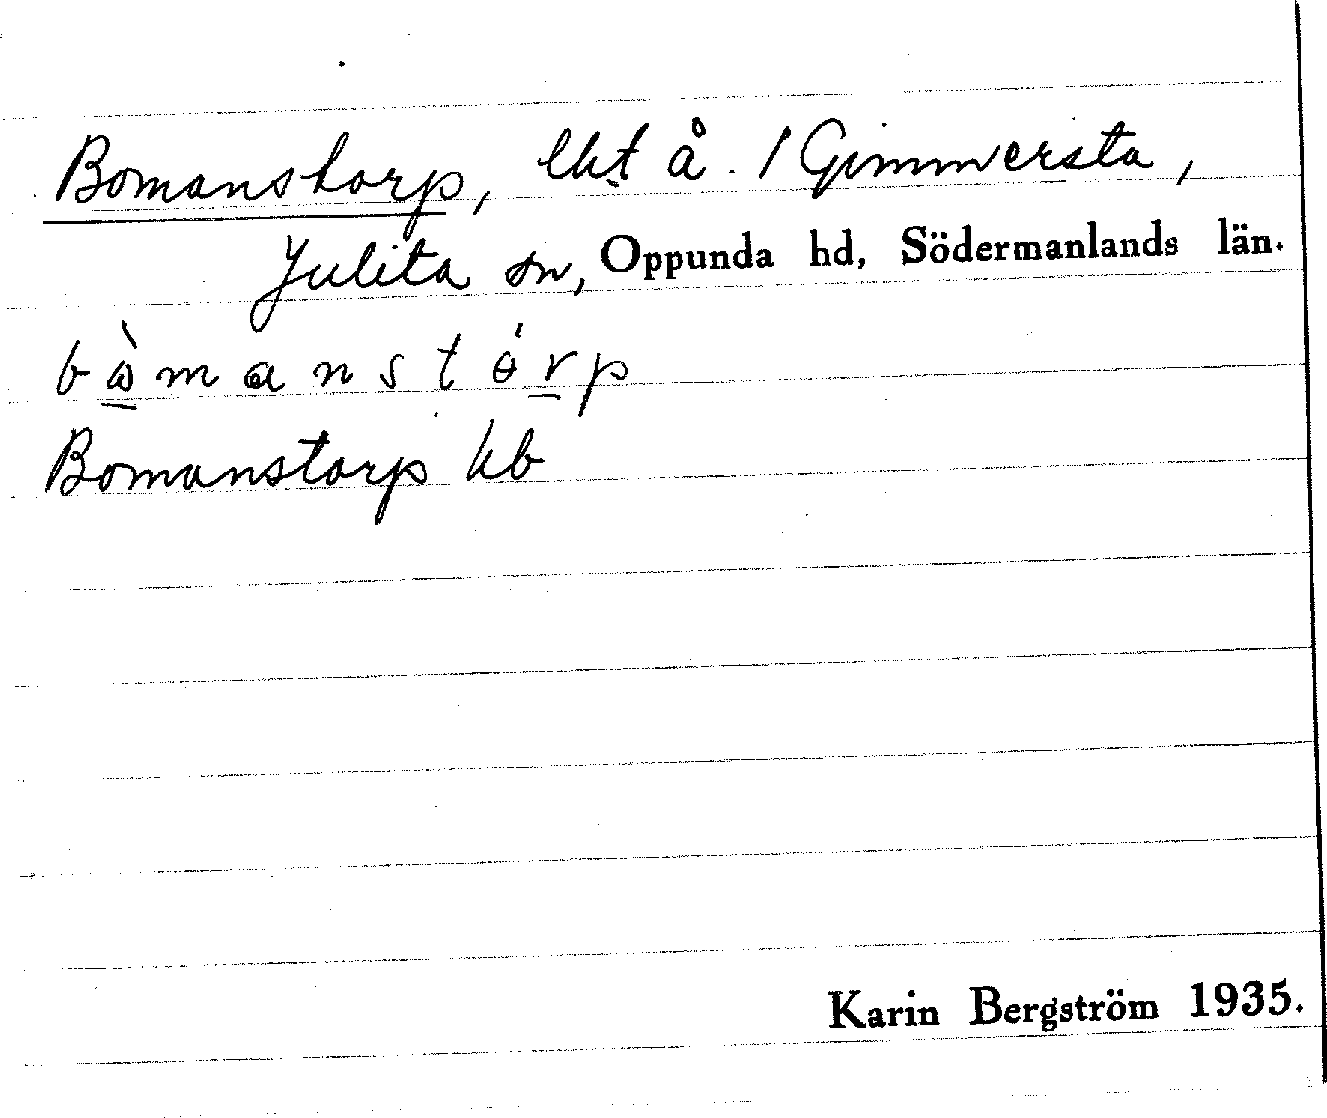 Bomanstorp, lht å. 1 Gimmersta,
Julita sn, Oppunda hd, Södermanlands län.
bὼmanstɵ́rp
Bomanstorp kb
Karin Bergström 1935.